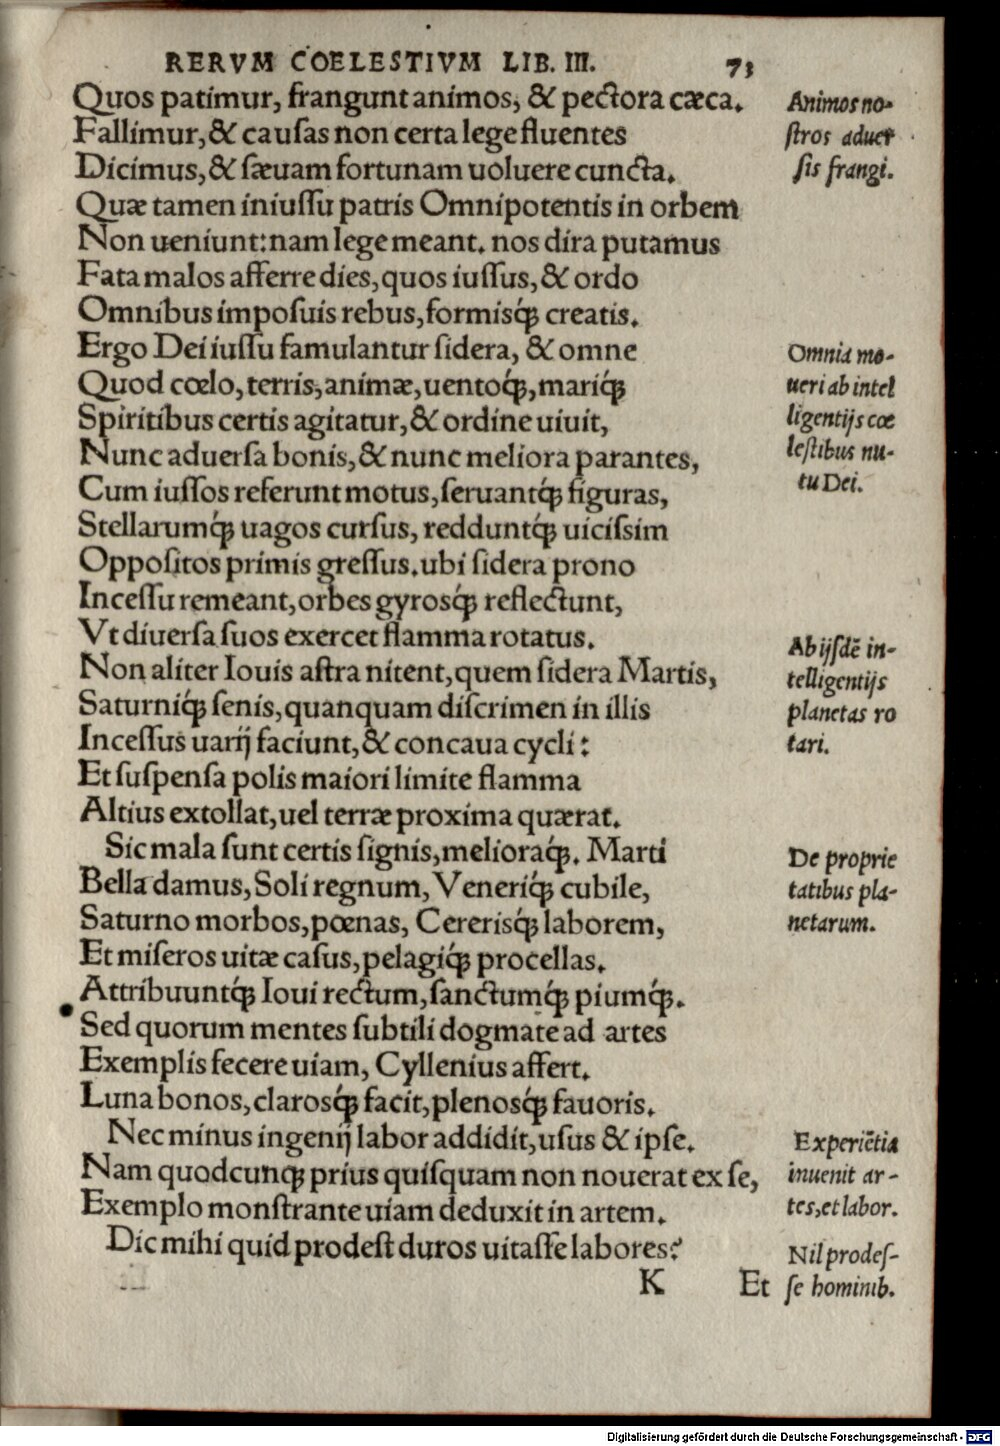 RERVM COELESTIVM LIB. III. 73
Quos patimur, frangunt animos, & pectora cæca.
Fallimur, & cauſas non certa lege fluentes
Dicimus, & ſæuam fortunam uoluere cuncta.
Quæ tamen iniuſſu patris Omnipotentis in orbem
Non ueniunt: nam lege meant. nos dira putamus
Fata malos afferre dies, quos iuſſus, & ordo
Omnibus impoſuis rebus, formisq́ꝫ creatis.
Ergo Dei iuſſu famulantur ſidera, & omne
Quod cœlo, terris, animæ, uentoq́ꝫ, mariq́ꝫ
Spiritibus certis agitatur, & ordine uiuit,
Nunc aduerſa bonis, & nunc meliora parantes,
Cum iuſſos referunt motus, ſeruantq́ꝫ figuras,
Stellarumq́ꝫ uagos curſus, redduntq́ꝫ uiciſsim
Oppoſitos primis greſſus. ubi ſidera prono
Inceſſu remeant, orbes gyrosq́ꝫ reflectunt,
Vt diuerſa ſuos exercet flamma rotatus.
Non aliter Iouis aſtra nitent, quem ſidera Martis,
Saturniq́ꝫ ſenis, quanquam diſcrimen in illis
Inceſſus uarij faciunt, & concaua cycli:
Et ſuſpenſa polis maiori limite flamma
Altius extollat, uel terræ proxima quærat.
Sic mala ſunt certis ſignis, melioraq́ꝫ. Marti
Bella damus, Soli regnum, Veneriq́ꝫ cubile,
Saturno morbos, pœnas, Cererisq́ꝫ laborem,
Et miſeros uitæ caſus, pelagiq́ꝫ procellas.
Attribuuntq́ꝫ Ioui rectum, ſanctumq́ꝫ piumq́ꝫ.
Sed quorum mentes ſubtili dogmate ad artes
Exemplis fecere uiam, Cyllenius affert.
Luna bonos, clarosq́ꝫ facit, plenosq́ꝫ fauoris.
Nec minus ingenij labor addidit, uſus & ipſe.
Nam quodcunqꝫ prius quiſquam non nouerat ex ſe,
Exemplo monſtrante uiam deduxit in artem.
Dic mihi quid prodeſt duros uitaſſe labores?
K Et
Animos no-
ſtros aduer
ſis frangi.
Omnia mo-
ueri ab intel
ligentijs cœ
leſtibus nu-
tu Dei.
Ab ijſdē in-
telligentijs
planetas ro
tari.
De proprie
tatibus pla-
netarum.
Experiētia
inuenit ar-
tes, et labor.
Nil prodeſ-
ſe hominib.
Digitalisierung gefördert durch die Deutsche Forschungsgemeinschaft - DFG